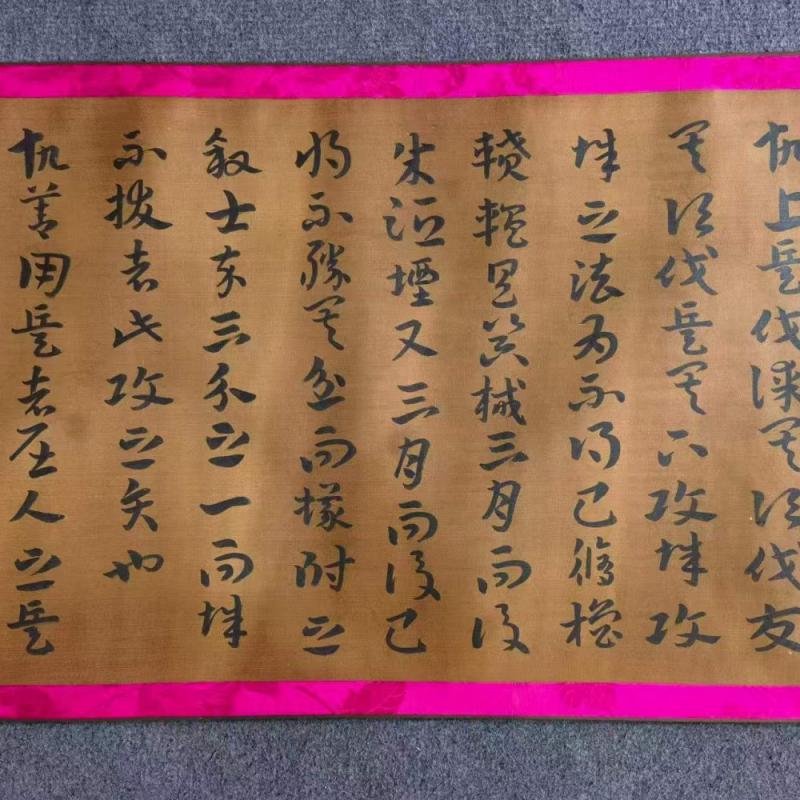 故上兵伐謀其次伐友
其次伐兵其下攻城攻
城之法為不得已脩櫓
轒轀具器械三月而後
成距堙又三月而後已
將不勝其忿而蟻附之
殺士卒三分之一而城
不拔者此攻之灾也
故善用兵者屈人之兵